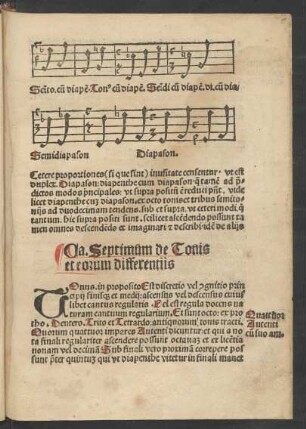 Scito. cū diapē. Tonꝰ cū diapē. Seidi cū diapē. di. cū dia.
Semidiapason Diapason.
Cetere proportiones (si que sunt) inusitate censentur. vt est
duplex Diapason: diapenthe cum diapason: q̄ tamē ad p̄
dictos modos principales: vt supra positū est reduci pn̄t. vide
licet diapenthe cum diapason. et octo tonis et tribus semito
nijs ad duodecimam tendens. sub et supra. ve ceteri modi. q̄
tantum. hic supra posite sunt. scilicet ascēdēdo possunt ta
men omnes descendēdo et imaginari et describi. id ē de alijs
Ca. Septimum de Tonis
et eorum differentijs
Tonus. in proposito Est discretio vel cognitio prin
cipij finisqʒ et medij ascensus vel descensus cuius
libet cantus regularis. Vel est regula docens na
turam cantuum regularium. Et sunt octo: ex pro
tho. Deutero. Trito et Tetrardo: antiquorum tonis tracti.
Quorum quattuor impares Autenti dicuntur et qui a no
ta finali regulariter ascendere possunt octauas et ex licētia
nonam vel decimā Sub finali vero proximā corripere pos
sunt preter quintum qui vt diapenthe vitetur in finali manet
Quattuor
Autenti
cū suo am.